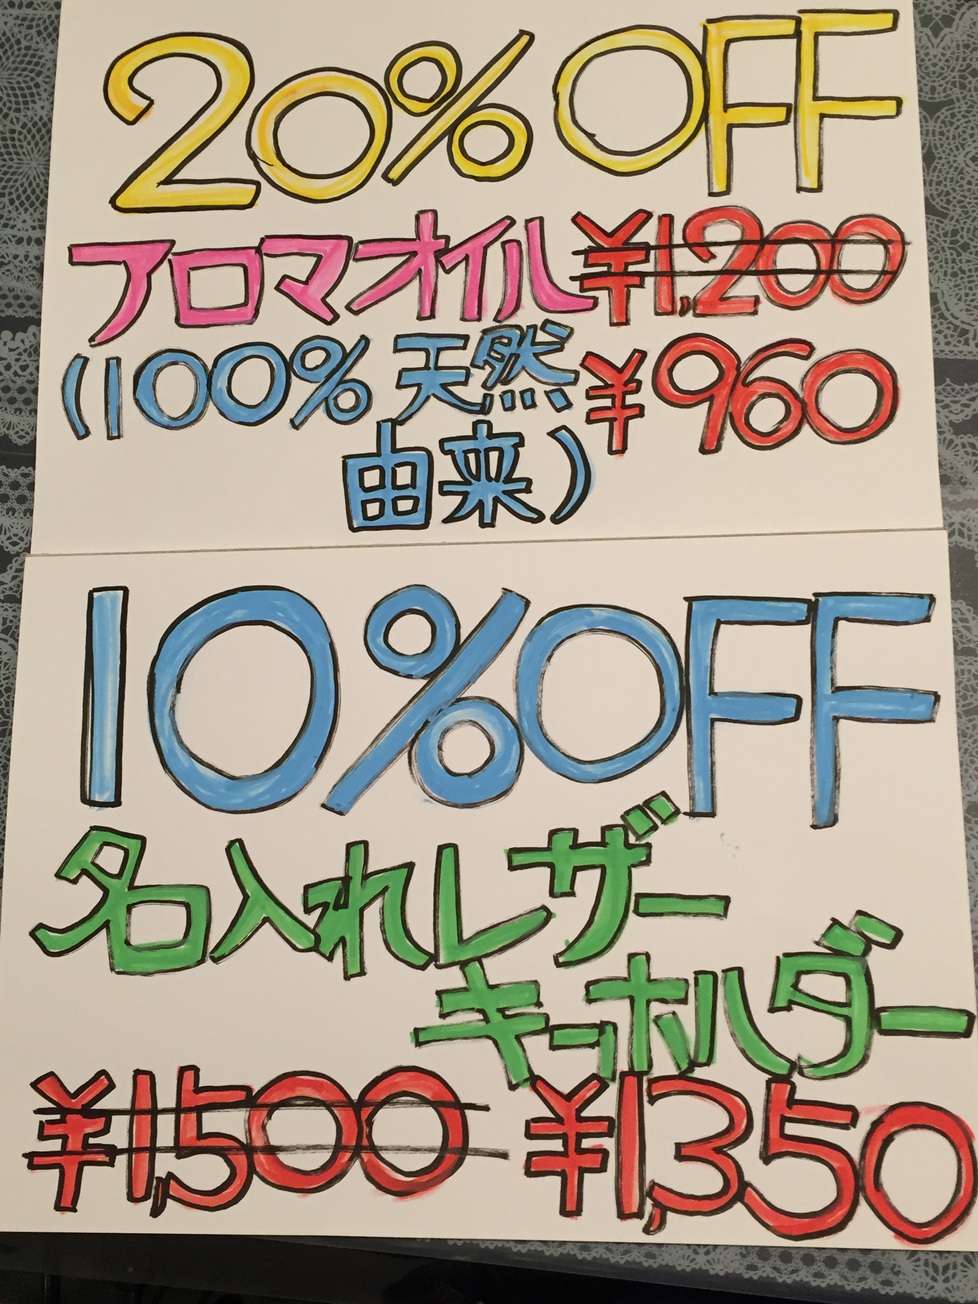 20% OFF
アロマオイル ¥1,200
(100% 天然 ¥960
由来)
10%OFF
名入れレザー
キーホルダー
¥1,500 ¥1,350